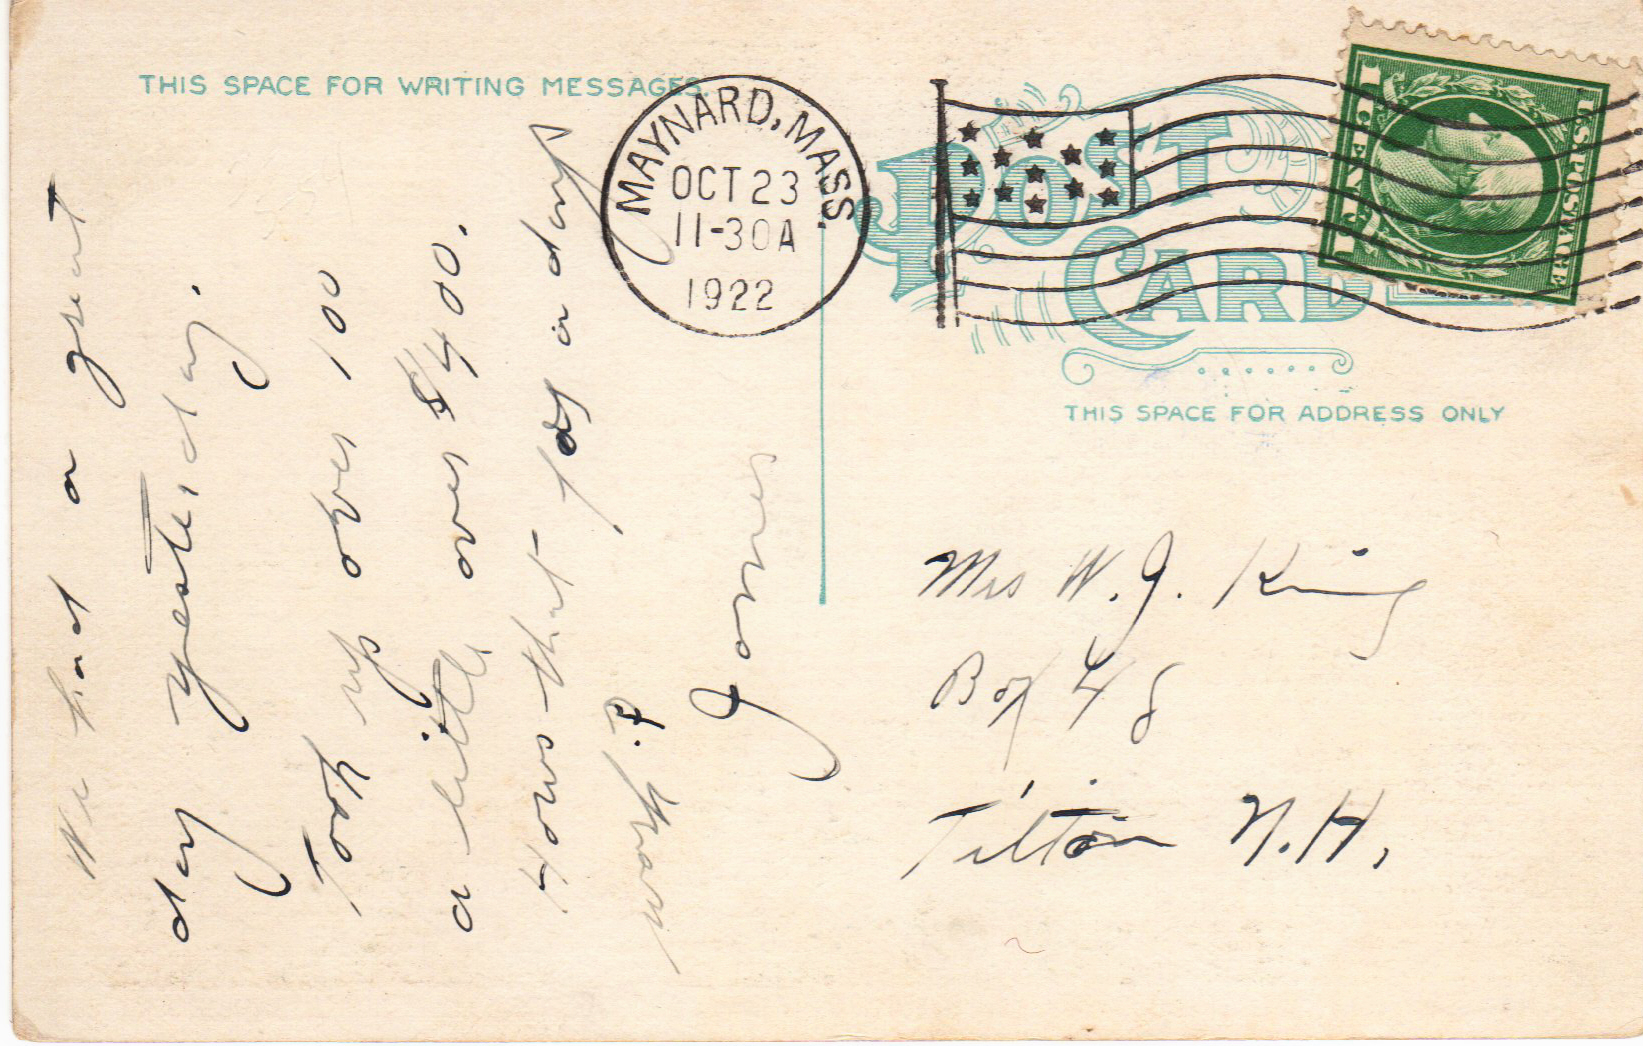 THIS SPACE FOR WRITING MESSAGES.
We had a great
day yesterday.
Took up over 100
a little over $400.
Hows that for a days
work.?
Jones
MAYNARD, MASS.
OCT 23
11-30A
1922
POST
CARD
1 CENT 1
U.S. POSTAGE
THIS SPACE FOR ADDRESS ONLY
Mrs W. J. King
Box 48
Tilton N.H.